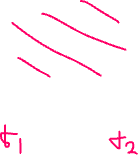 t₁ t₂